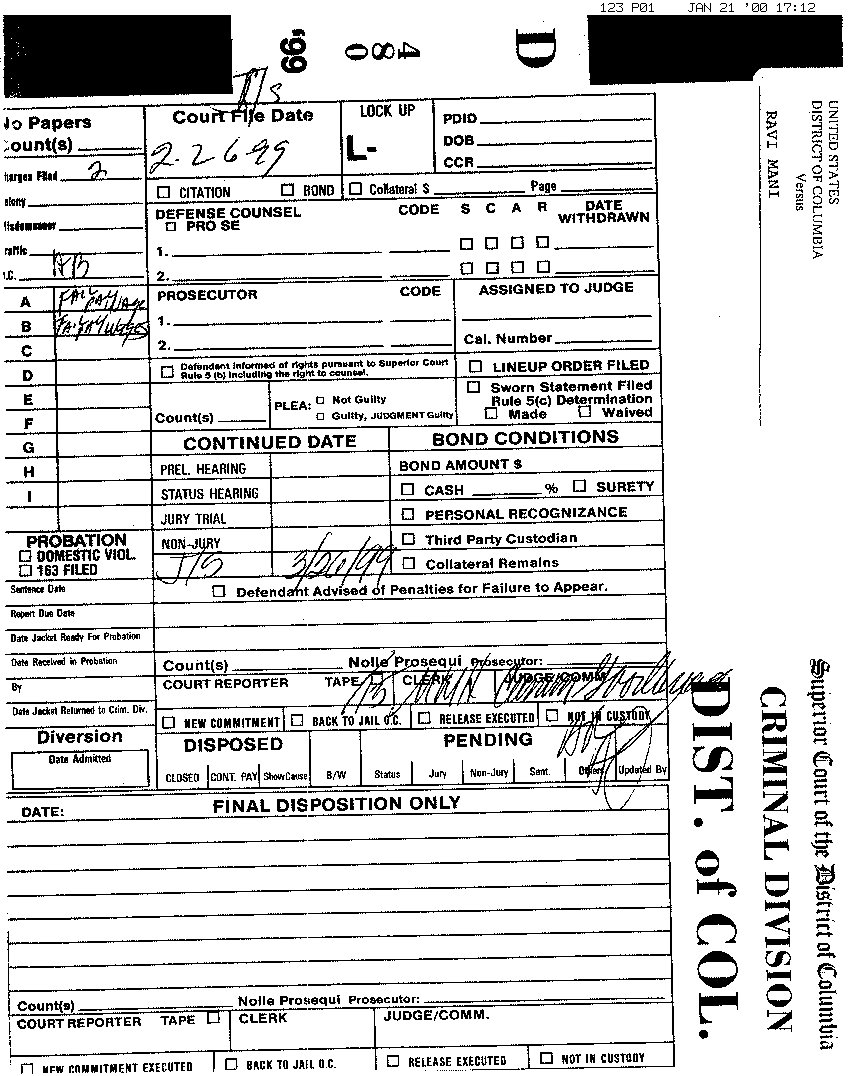 123 P01 JAN 21 '00 17:12
'99
480
D
UNITED STATES
DISTRICT OF COLUMBIA
Versus
RAVI MANI
J/S
No Papers
Count(s)
Court File Date
2-26-99
LOCK UP
L-
PDID
DOB
CCR
Charges Filed 2
Felony
Misdemeanor
Traffic
D.C. AB
CITATION BOND Collateral $ Page
DEFENSE COUNSEL CODE S C A R DATE WITHDRAWN
PRO SE
1.
2.
A Fail Pay Wage
B Fail Pay Wages
C
D
E
F
G
H
I
PROSECUTOR CODE
1.
2.
ASSIGNED TO JUDGE
Cal. Number
Defendant informed of rights pursuant to Superior Court
Rule 5 (b) including the right to counsel.
LINEUP ORDER FILED
Sworn Statement Filed
Rule 5(c) Determination
Made Waived
Count(s) PLEA: Not Guilty
Guilty, JUDGMENT Guilty
CONTINUED DATE
PREL. HEARING
STATUS HEARING
JURY TRIAL
NON-JURY
J/S 3/26/99
BOND CONDITIONS
BOND AMOUNT $
CASH % SURETY
PERSONAL RECOGNIZANCE
Third Party Custodian
Collateral Remains
PROBATION
DOMESTIC VIOL.
163 FILED
Sentence Date
Report Due Date
Date Jacket Ready For Probation
Date Received in Probation
By
Date Jacket Returned to Crim. Div.
Diversion
Date Admitted
Defendant Advised of Penalties for Failure to Appear.
Count(s) Nolle Prosequi Prosecutor:
COURT REPORTER TAPE CLERK JUDGE/COMM.
NEW COMMITMENT BACK TO JAIL O.C. RELEASE EXECUTED NOT IN CUSTODY
DISPOSED PENDING
CLOSED CONT. PAY Show Cause B/W Status Jury Non-Jury Sent. Others Updated By
DATE: FINAL DISPOSITION ONLY
Count(s) Nolle Prosequi Prosecutor:
COURT REPORTER TAPE CLERK JUDGE/COMM.
NEW COMMITMENT EXECUTED BACK TO JAIL O.C. RELEASE EXECUTED NOT IN CUSTODY
Superior Court of the District of Columbia
CRIMINAL DIVISION
DIST. of COL.